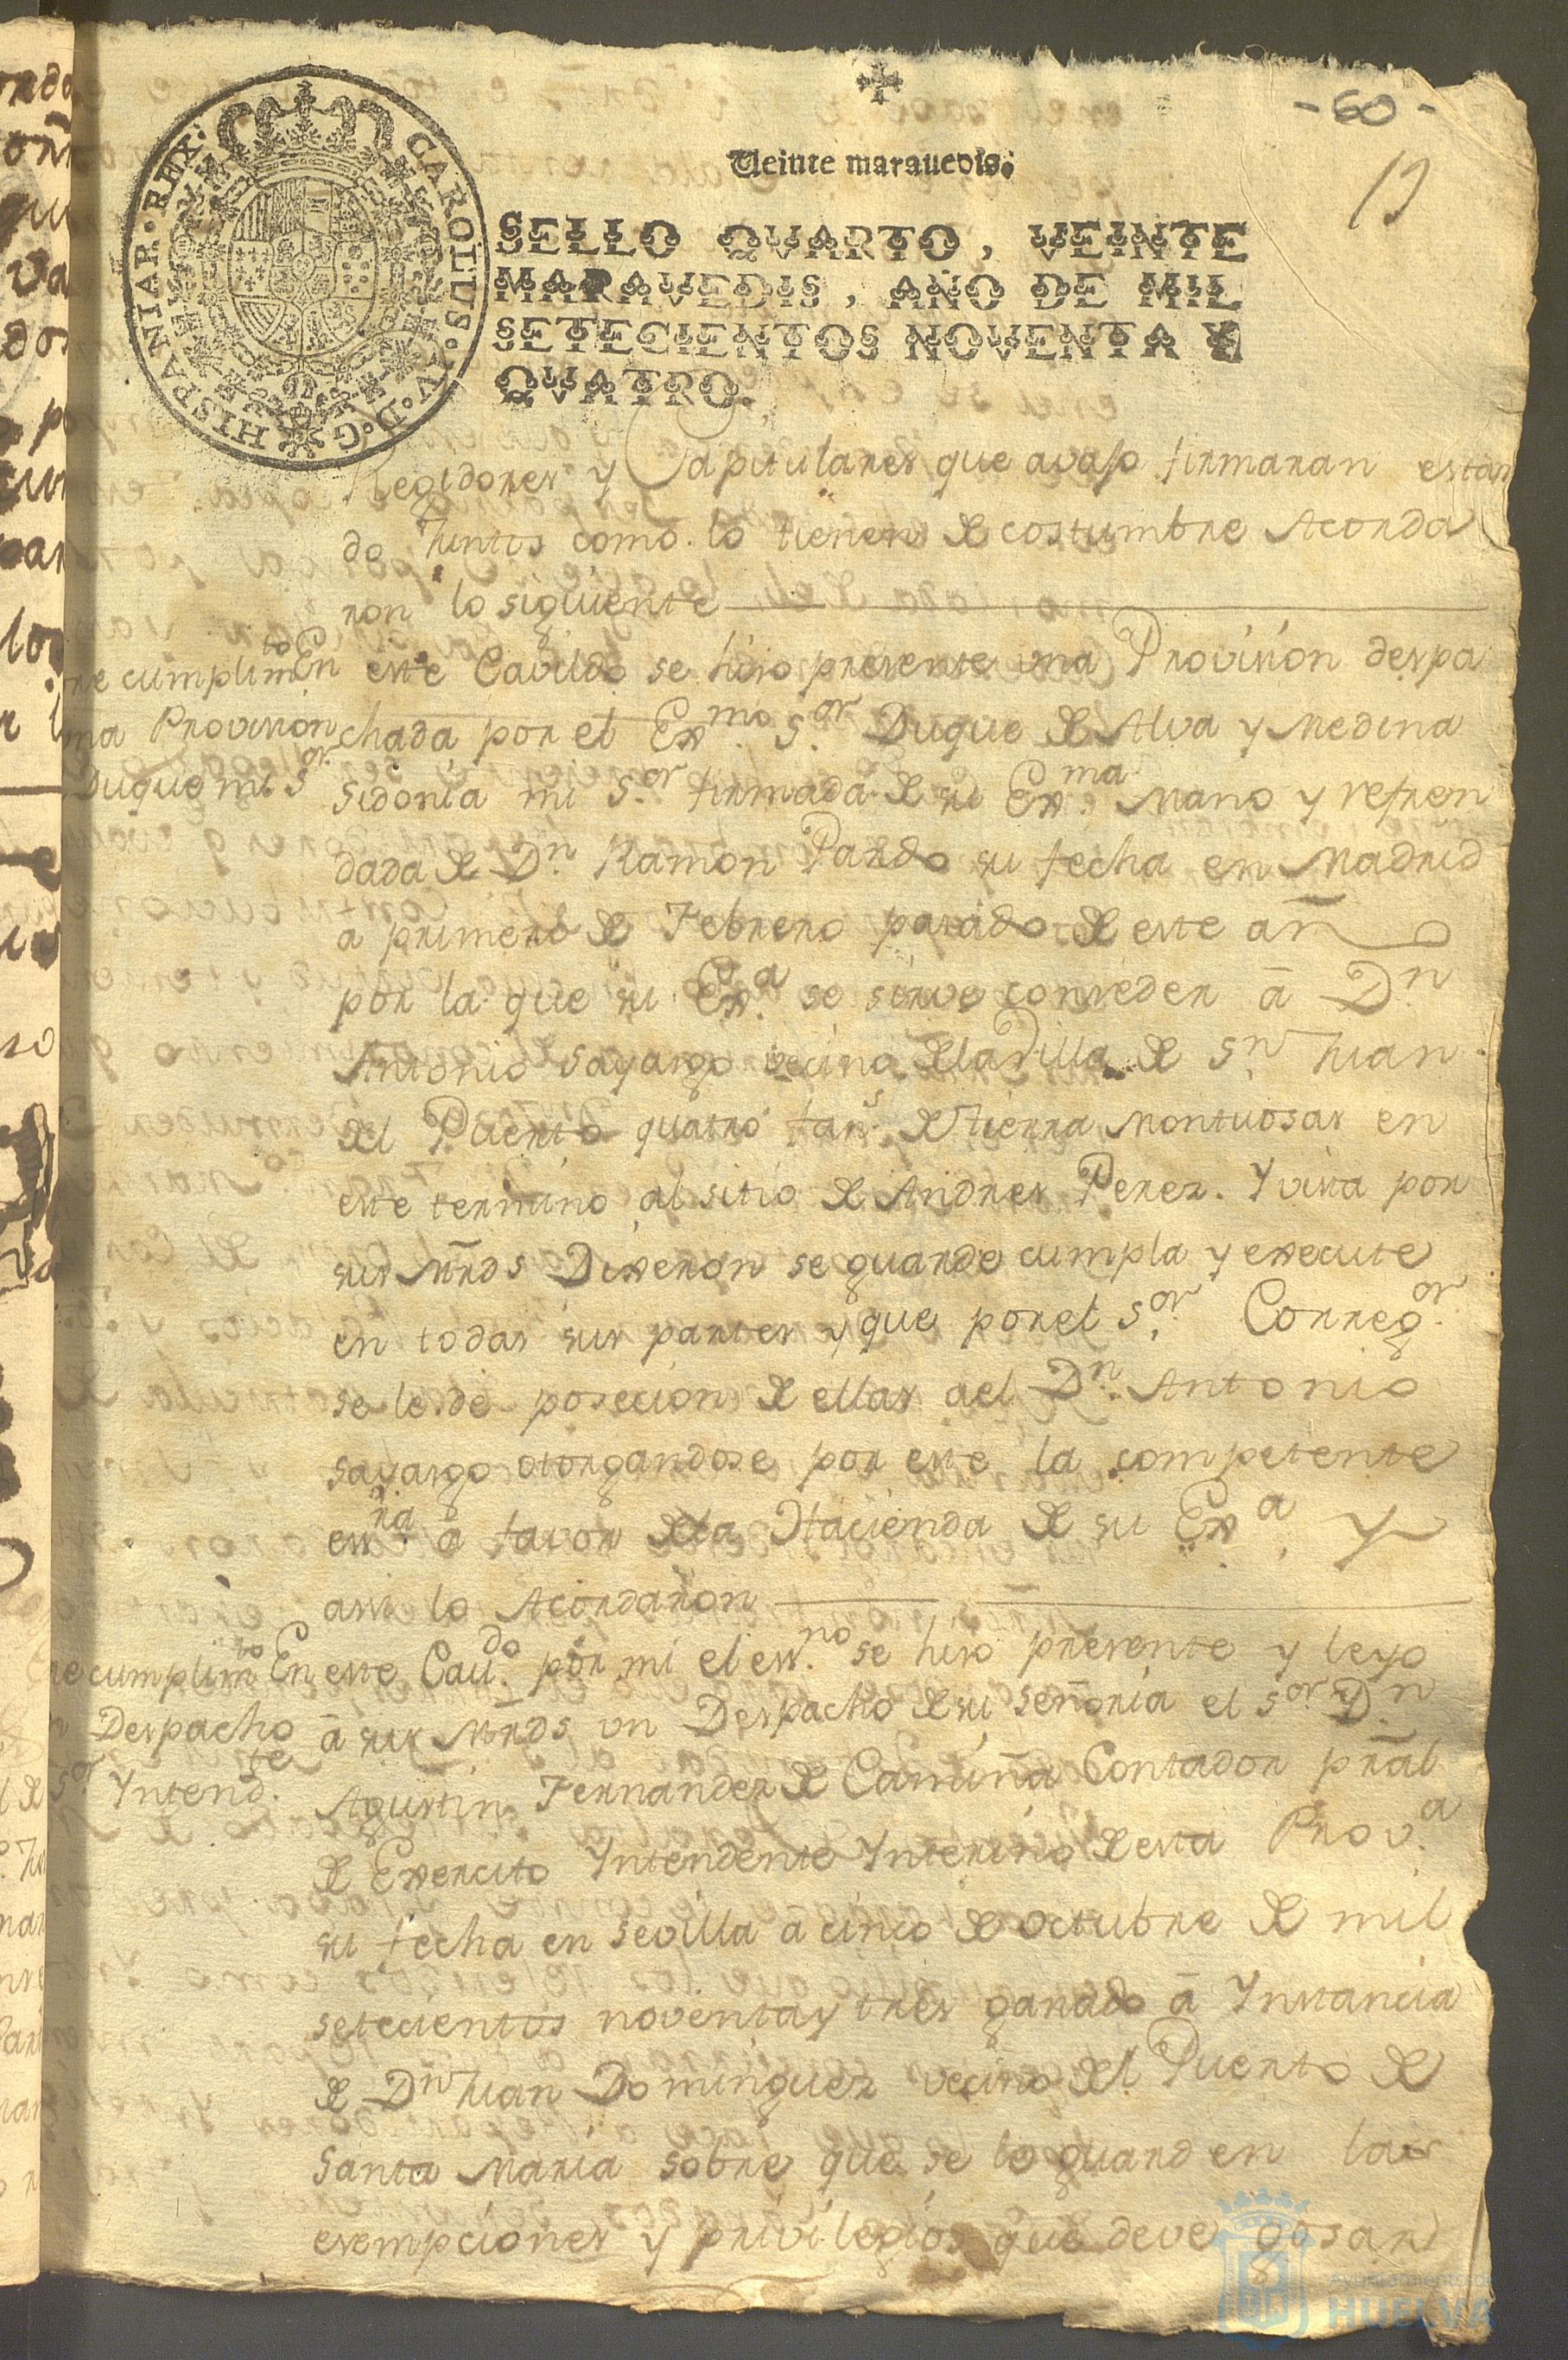 - 60 -
19
Veinte maravedis.
CAROLUS·IV·D·G·HISPANIAR·REX·
SELLO QVARTO, VEINTE
MARAVEDIS, AÑO DE MIL
SETECIENTOS NOVENTA Y
QVATRO.
Regidores y Capitulares que avajo firmaran estan
do Juntos como lo tienen de costumbre Acorda
ron lo siguiente
cumplimto
una Provision
Duque mi Sor
En este Cavildo se hiso presente una Provision despa
chada por el Exmo. Sor. Duque de Alva y Medina
Sidonia mi Sor. firmada de su Exma. Mano y refren
dada de Dn. Ramon Pardo su fecha en Madrid
a primero de Febrero pasado de este año
por la que su Exa. se sirve conseder â Dn
Antonio Sayago vecino de la Villa de Sn. Juan
del Puerto quatro fans. de tierra Montuosas en
este termino al sitio de Andres Perez. Y vista por
sus Mrds Dixeron se guarde cumpla y execute
en todas sus partes y que por el Sor. Corregor.
se le de posecion de ellas ael Dn. Antonio
Sayago otorgandose por este la competente
essra. a favor de la Hacienda de su Exa. y
assi lo Acordaron
cumplimto
Despacho
del Sor Yntendte.
En este Caudo. por mi el essno. se hiso presente y leyo
â sus Mrds un Despacho de su señoria el Sor Dn
Agustin Fernandez de Camuña Contador prãl
de Exercito Yntendente Ynterino de esta Prova.
su fecha en Sevilla a cinco de octubre de mil
setecientos noventa y tres ganado â Ynstancia
de Dn Juan Dominguez vecino del Puerto de
Santa Maria sobre que se le guarden las
exempciones y privilegios que deve gosar
Ayuntamiento de
HUELVA